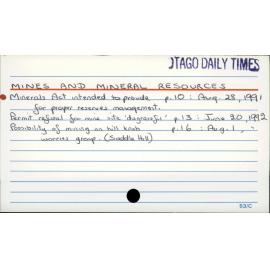 OTAGO DAILY TIMES
MINES AND MINERAL RESOURCES
Minerals Act intended to provide p.10 : Aug. 28, 1991
for proper reserves management.
Permit refusal for mine site 'disgraceful' p.13 : June 20, 1992
Possibility of mining on hill knob p.16 : Aug. 1, "
worries group. (Saddle Hill)
53/C